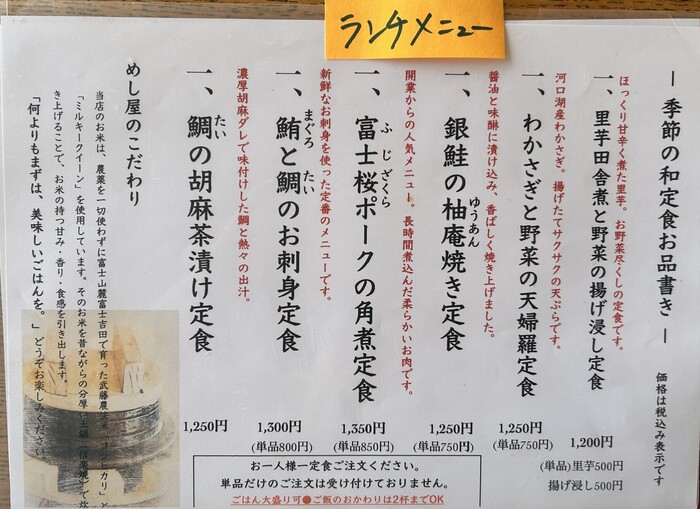 ランチメニュー
― 季節の和定食お品書き ―
価格は税込み表示です
ほっくり甘辛く煮た里芋。お野菜尽くしの定食です。
一、里芋田舎煮と野菜の揚げ浸し定食
1,200円
(単品)里芋500円
揚げ浸し500円
河口湖産わかさぎ。揚げたてサクサクの天ぷらです。
一、わかさぎと野菜の天婦羅定食
1,250円
(単品750円)
醤油と味醂に漬け込み、香ばしく焼き上げました。
一、銀鮭の柚庵焼き定食
ゆうあん
1,250円
(単品750円)
開業からの人気メニュー。長時間煮込んだ柔らかいお肉です。
一、富士桜ポークの角煮定食
ふじざくら
1,350円
(単品850円)
新鮮なお刺身を使った定番のメニューです。
一、鮪と鯛のお刺身定食
まぐろ たい
1,300円
(単品800円)
濃厚胡麻ダレで味付けした鯛と熱々の出汁。
一、鯛の胡麻茶漬け定食
たい
1,250円
めし屋のこだわり
当店のお米は、農薬を一切使わずに富士山麓富士吉田で育った武藤農法米「コシヒカリ」と
「ミルキークイーン」を使用しています。そのお米を昔ながらの分厚い土鍋（信楽焼）で炊
き上げることで、お米の持つ甘み・香り・食感を引き出します。
「何よりもまずは、美味しいごはんを。」どうぞお楽しみください。
お一人様一定食ご注文ください。
単品だけのご注文は受け付けておりません。
ごはん大盛り可●ご飯のおかわりは2杯までOK